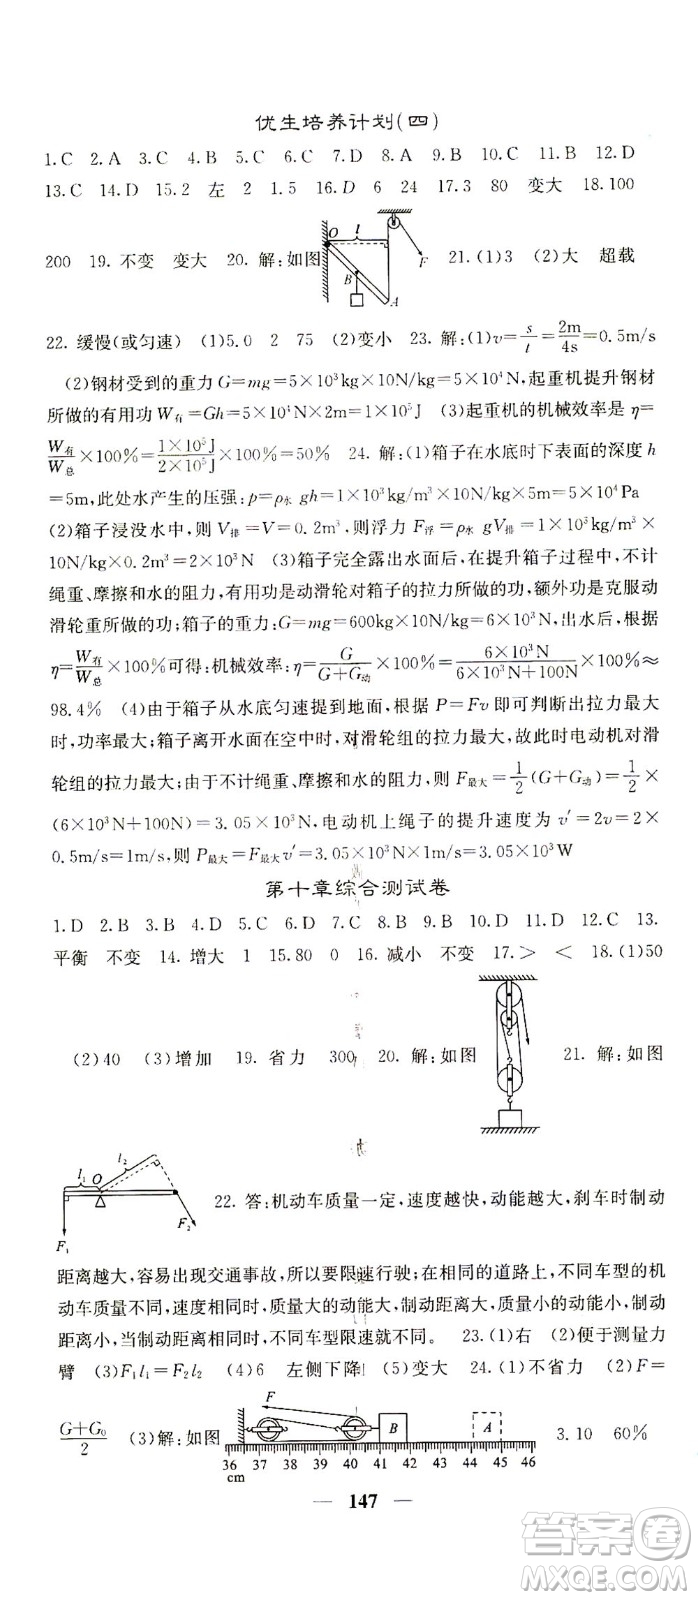 优生培养计划(四)
1.C 2.A 3.A 4.B 5.C 6.C 7.D 8.A 9.C 10.C 11.B 12.D
13.C 14.D 15.2 左 2 1.5 16.D 6 24 17.3 80 变大 18.100
200 19.不变 变大 20.解:如图 21.(1)3 (2)大 超载
O l B A F
22.缓慢(或匀速) (1)5.0 2 75 (2)变小 23.解:(1)v=s/t=2m/4s=0.5m/s
(2)钢材受到的重力G=mg=5×10³kg×10N/kg=5×10⁴N,起重机提升钢材
所做的有用功W有=Gh=5×10⁴N×2m=1×10⁵J (3)起重机的机械效率是η=
W有/W总×100%=1×10⁵J/2×10⁵J×100%=50% 24.解:(1)箱子在水底时下表面的深度h
=5m,此处水产生的压强:p=ρ水gh=1×10³kg/m³×10N/kg×5m=5×10⁴Pa
(2)箱子浸没水中,则V排=V=0.2m³,则浮力F浮=ρ水gV排=1×10³kg/m³×
10N/kg×0.2m³=2×10³N (3)箱子完全露出水面后,在提升箱子过程中,不计
绳重、摩擦和水的阻力,有用功是动滑轮对箱子的拉力所做的功,额外功是克服动
滑轮重所做的功;箱子的重力:G=mg=600kg×10N/kg=6×10³N,出水后,根据
η=W有/W总×100%可得:机械效率:η=G/(G+G动)×100%=6×10³N/(6×10³N+100N)×100%≈
98.4% (4)由于箱子从水底匀速提到地面,根据P=Fv即可判断出拉力最大
时,功率最大;箱子离开水面在空中时,对滑轮组的拉力最大,故此时电动机对滑
轮组的拉力最大;由于不计绳重、摩擦和水的阻力,则F最大=1/2(G+G动)=1/2×
(6×10³N+100N)=3.05×10³N,电动机上绳子的提升速度为v′=2v=2×
0.5m/s=1m/s,则P最大=F最大v′=3.05×10³N×1m/s=3.05×10³W
第十章综合测试卷
1.D 2.B 3.C 4.B 5.D 6.D 7.C 8.B 9.C 10.D 11.C 12.C 13.
平衡 不变 14.增大 1 15.80 0 16.减小 不变 17.> < 18.(1)50
(2)40 (3)增加 19.省力 300 20.解:如图 21.解:如图
l₁ O l₂ F₁ F₂
22.答:机动车质量一定,速度越快,动能越大,刹车时制动
距离越大,容易出现交通事故,所以要限速行驶;在相同的道路上,不同车型的机
动车质量不同,速度相同时,质量大的动能大,制动距离大,质量小的动能小,制动
距离小,当制动距离相同时,不同车型限速就不同。 23.(1)右 (2)便于测量力
臂 (3)F₁l₁=F₂l₂ (4)6 左侧下降 (5)变大 24.(1)不省力 (2)F=
(G+G₀)/2 (3)解:如图 3.10 60%
F B A
36 37 38 39 40 41 42 43 44 45 46
cm
— 147 —
答案圈
MXQE.COM